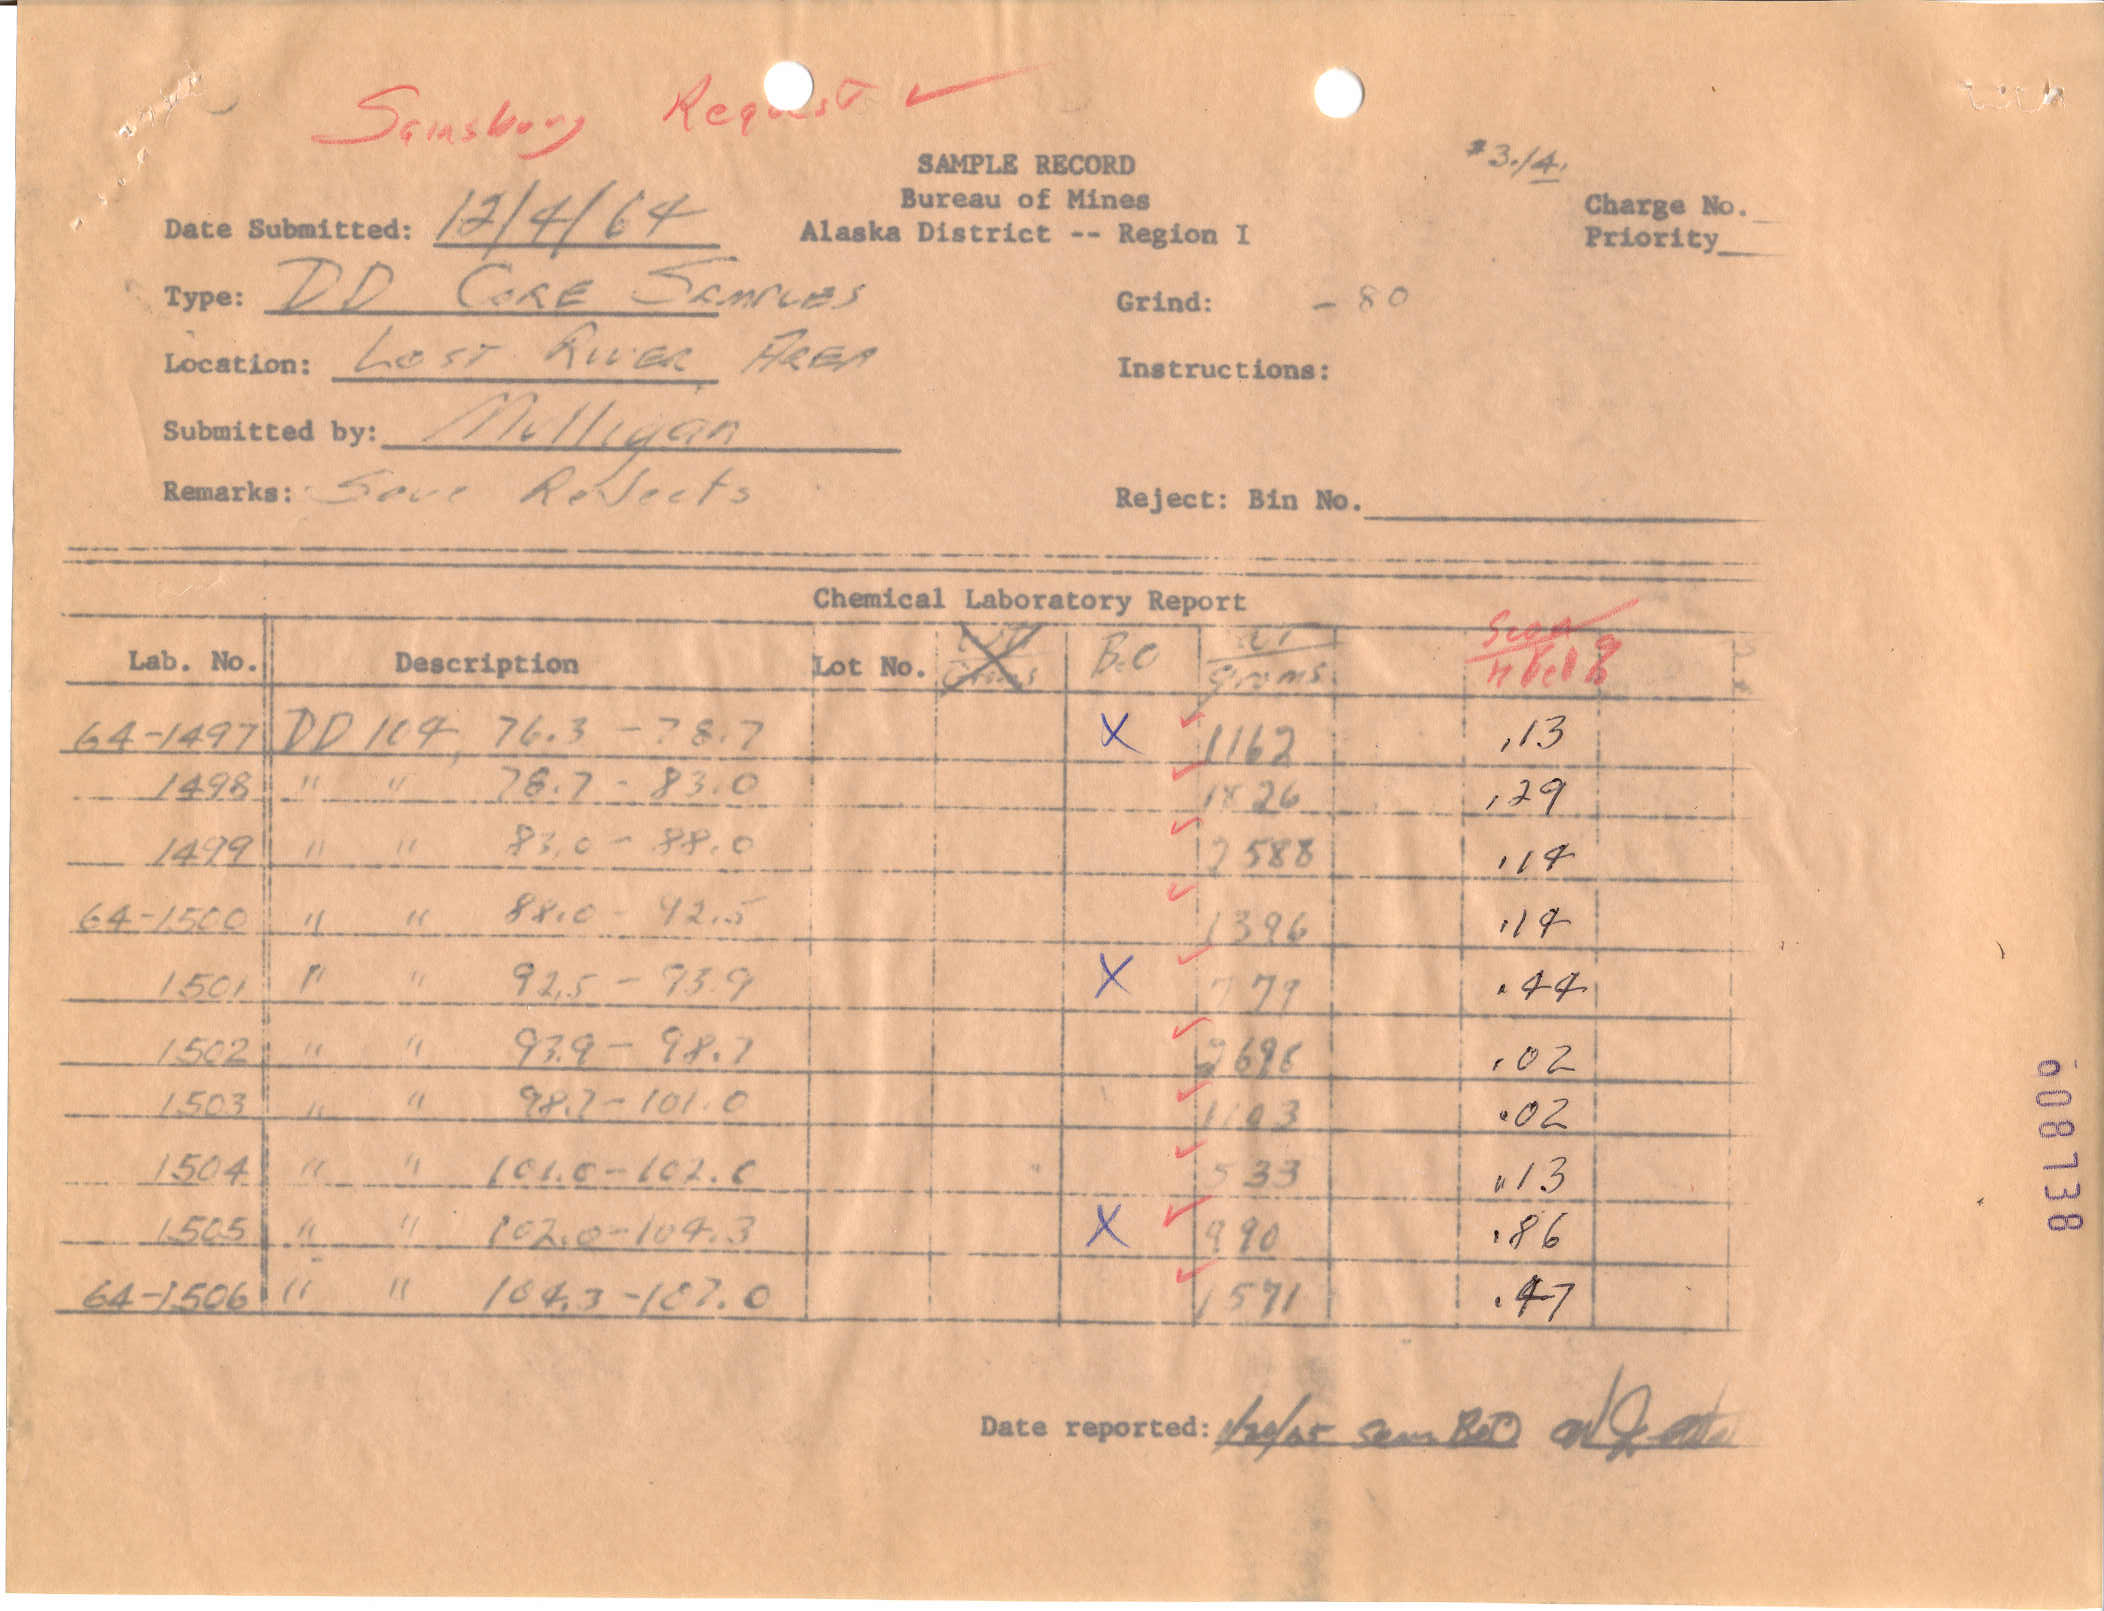 Sainsbury Request ✓
#3.14.
SAMPLE RECORD
Bureau of Mines
Alaska District -- Region I
Charge No.
Priority
Date Submitted: 12/4/64
Type: DD CORE SAMPLES
Grind: -80
Location: LOST RIVER AREA
Instructions:
Submitted by: Mulligan
Remarks: Save Rejects
Reject: Bin No.
Chemical Laboratory Report
Lab. No. Description Lot No. BeO WT grams
64-1497 DD 104, 76.3 - 78.7 X ✓ 1162 .13
1498 " " 78.7 - 83.0 ✓ 1826 .29
1499 " " 83.0 - 88.0 ✓ 2588 .14
64-1500 " " 88.0 - 92.5 ✓ 1396 .14
1501 " " 92.5 - 93.9 X ✓ 779 .44
1502 " " 93.9 - 98.7 ✓ .02
1503 " " 98.7 - 101.0 ✓ 1103 .02
1504 " " 101.0 - 102.0 ✓ 533 .13
1505 " " 102.0 - 104.3 X ✓ 990 .86
64-1506 " " 104.3 - 107.0 ✓ 1571 .47
Date reported: BeO
608738